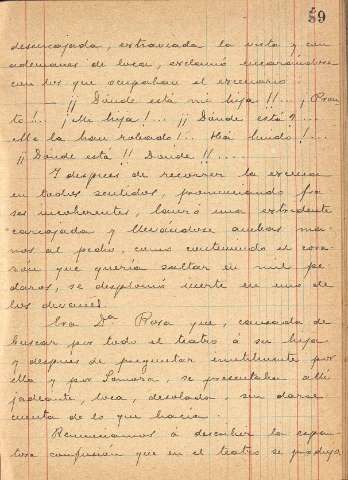 59
desencajada, extraviada la vista y con
ademanes de loca, exclamó encarándose
con los que ocupaban el escenario:
— ¡¡ Dónde está mi hija!!... ¡Pron
to!.. ¡Mi hija!... ¡¡ Dónde está?
¡Me la han robado!.. ¡Há huido!...
¡¡ Dónde está!! Dónde!!...
Y después de recorrer la escena
en todos sentidos, pronunciando fra
ses incoherentes, lanzó una estridente
carcajada y llevándose ambas ma
nos al pecho, como conteniendo el cora
zón que quería saltar en mil pe
dazos, se desplomó inerte en uno de
los divanes.
Era Dª Rosa que, cansada de
buscar por todo el teatro á su hija
y después de preguntar inutilmente por
ella y por Zamora, se presentaba allí
jadeante, loca, desolada, sin darse
cuenta de lo que hacía.
Renunciamos á describir la espan
tosa confusión que en el teatro se produjo.